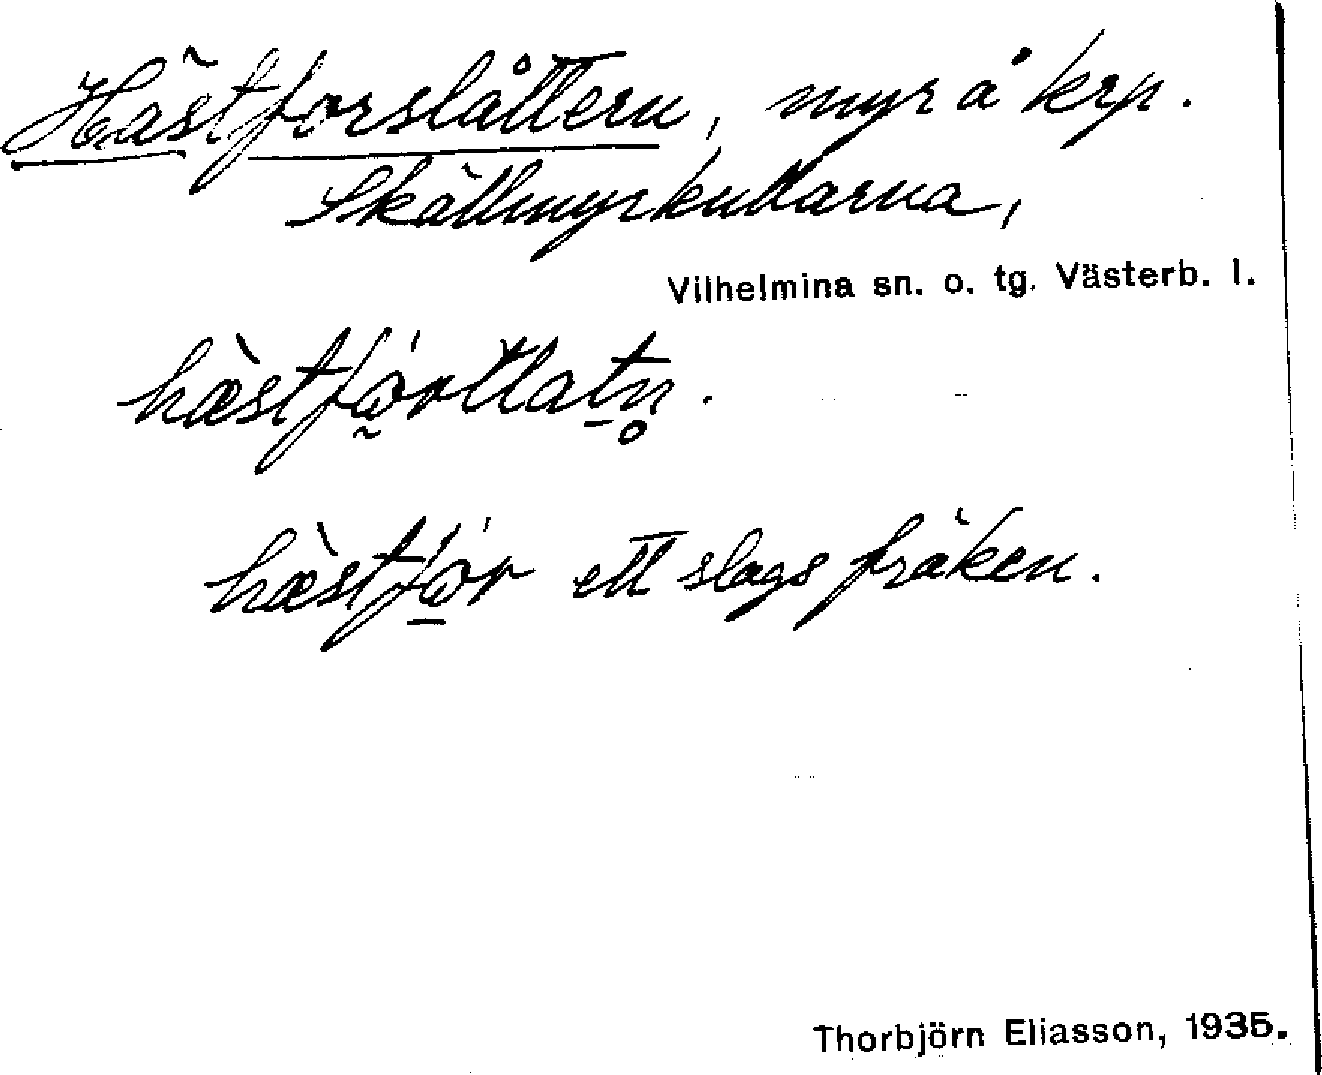 Hästforslåttern, myr å krp.
Skällmyrkullarna,
Vilhelmina sn. o. tg. Västerb. l.
hæ̀stfǿrtlatn̥.
hæ̀stfǿr ett slags fräken.
Thorbjörn Eliasson, 1935.